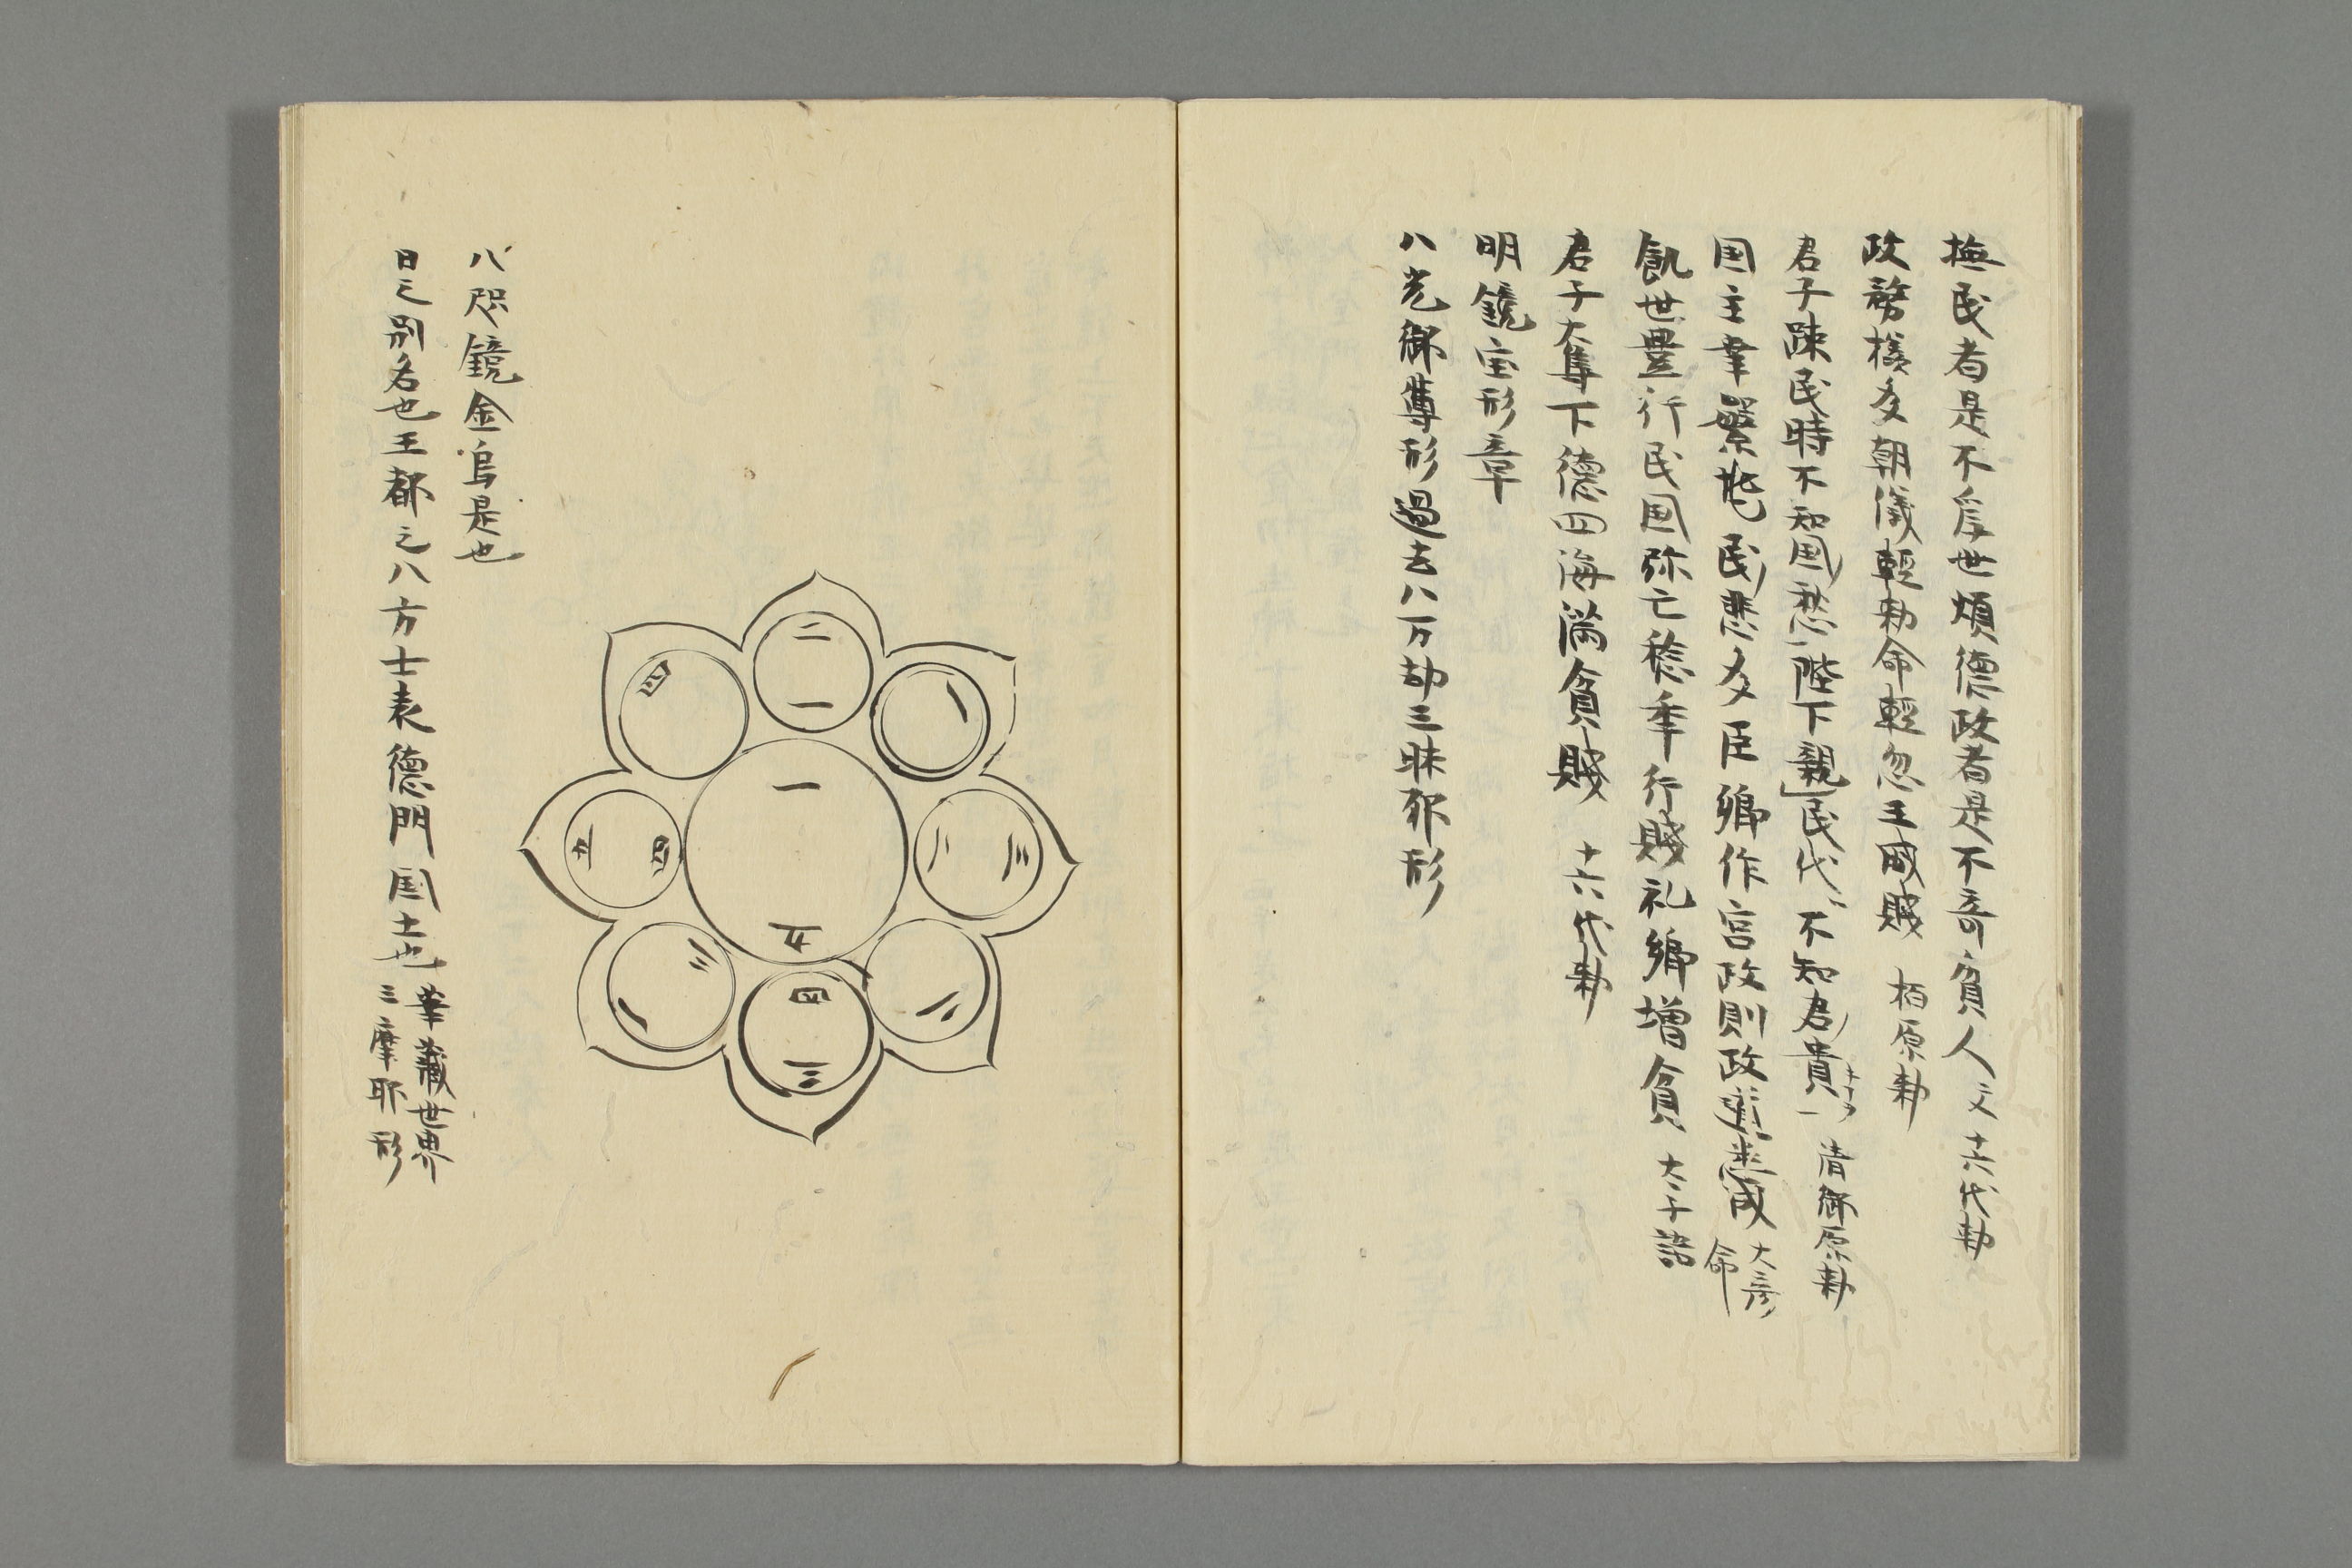 撫民者是不為世煩德政者是不奇貧人文 十六代勅
政務樣多朝儀輕勅命輕忽王威賤 栢原勅
君子疎民時不知国愁陛下親民代不知君貴 清御原勅
国主幸繁耗民悲多臣鄉作宮政則政道 大彦命
飢世豊行民国弥亡稔年行賤礼鄉增貧 太子語
君子大奪下德四海満貧賤 十六代勅
明鏡宝形章
八光御尊形過去八万劫三昧耶形
二
一
四
一
二
三
一
五
五
四
三
一
四
三
二
八咫鏡金烏是也
日之別名也王都之八方士表德門国土也 華藏世界
三摩耶形